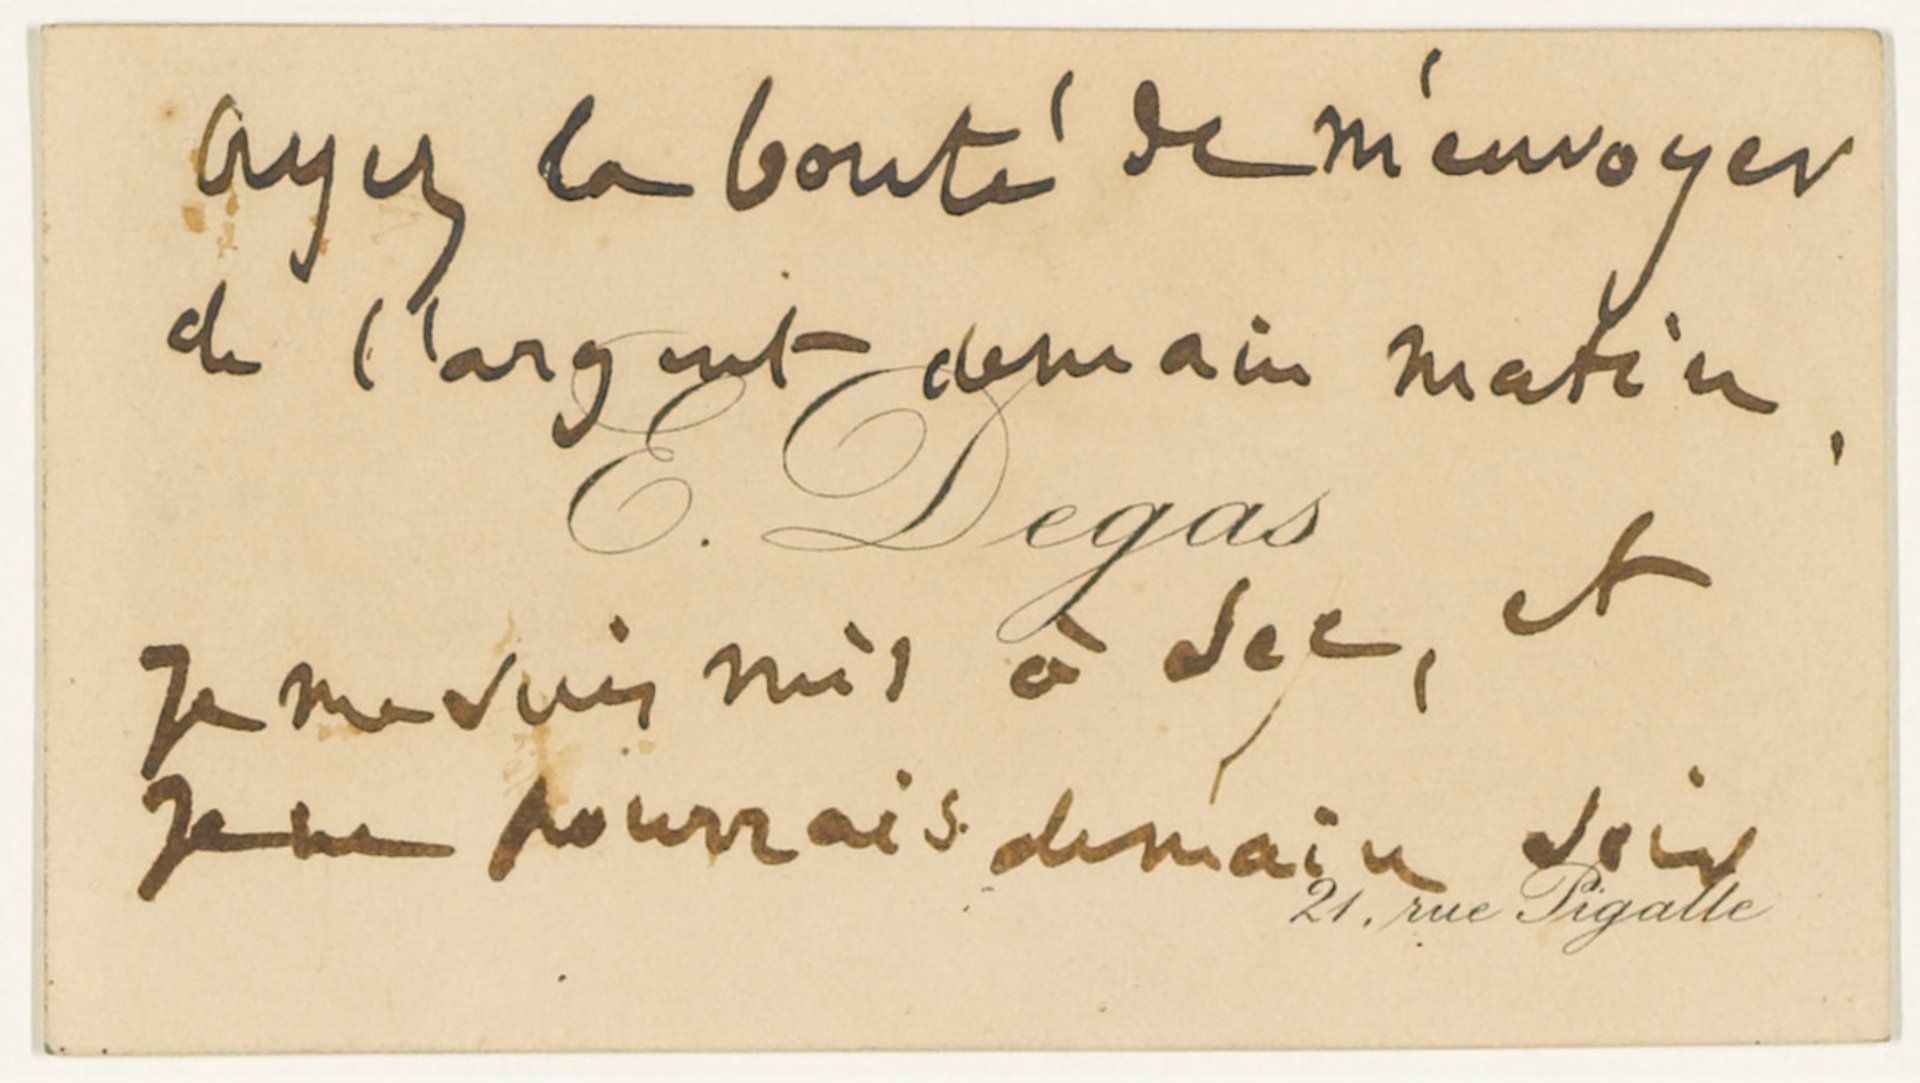 ayez la bonté de m'envoyer
de l'argent demain matin,
E. Degas
je me suis mis à sec, et
je ne pourrais demain soir
21, rue Pigalle